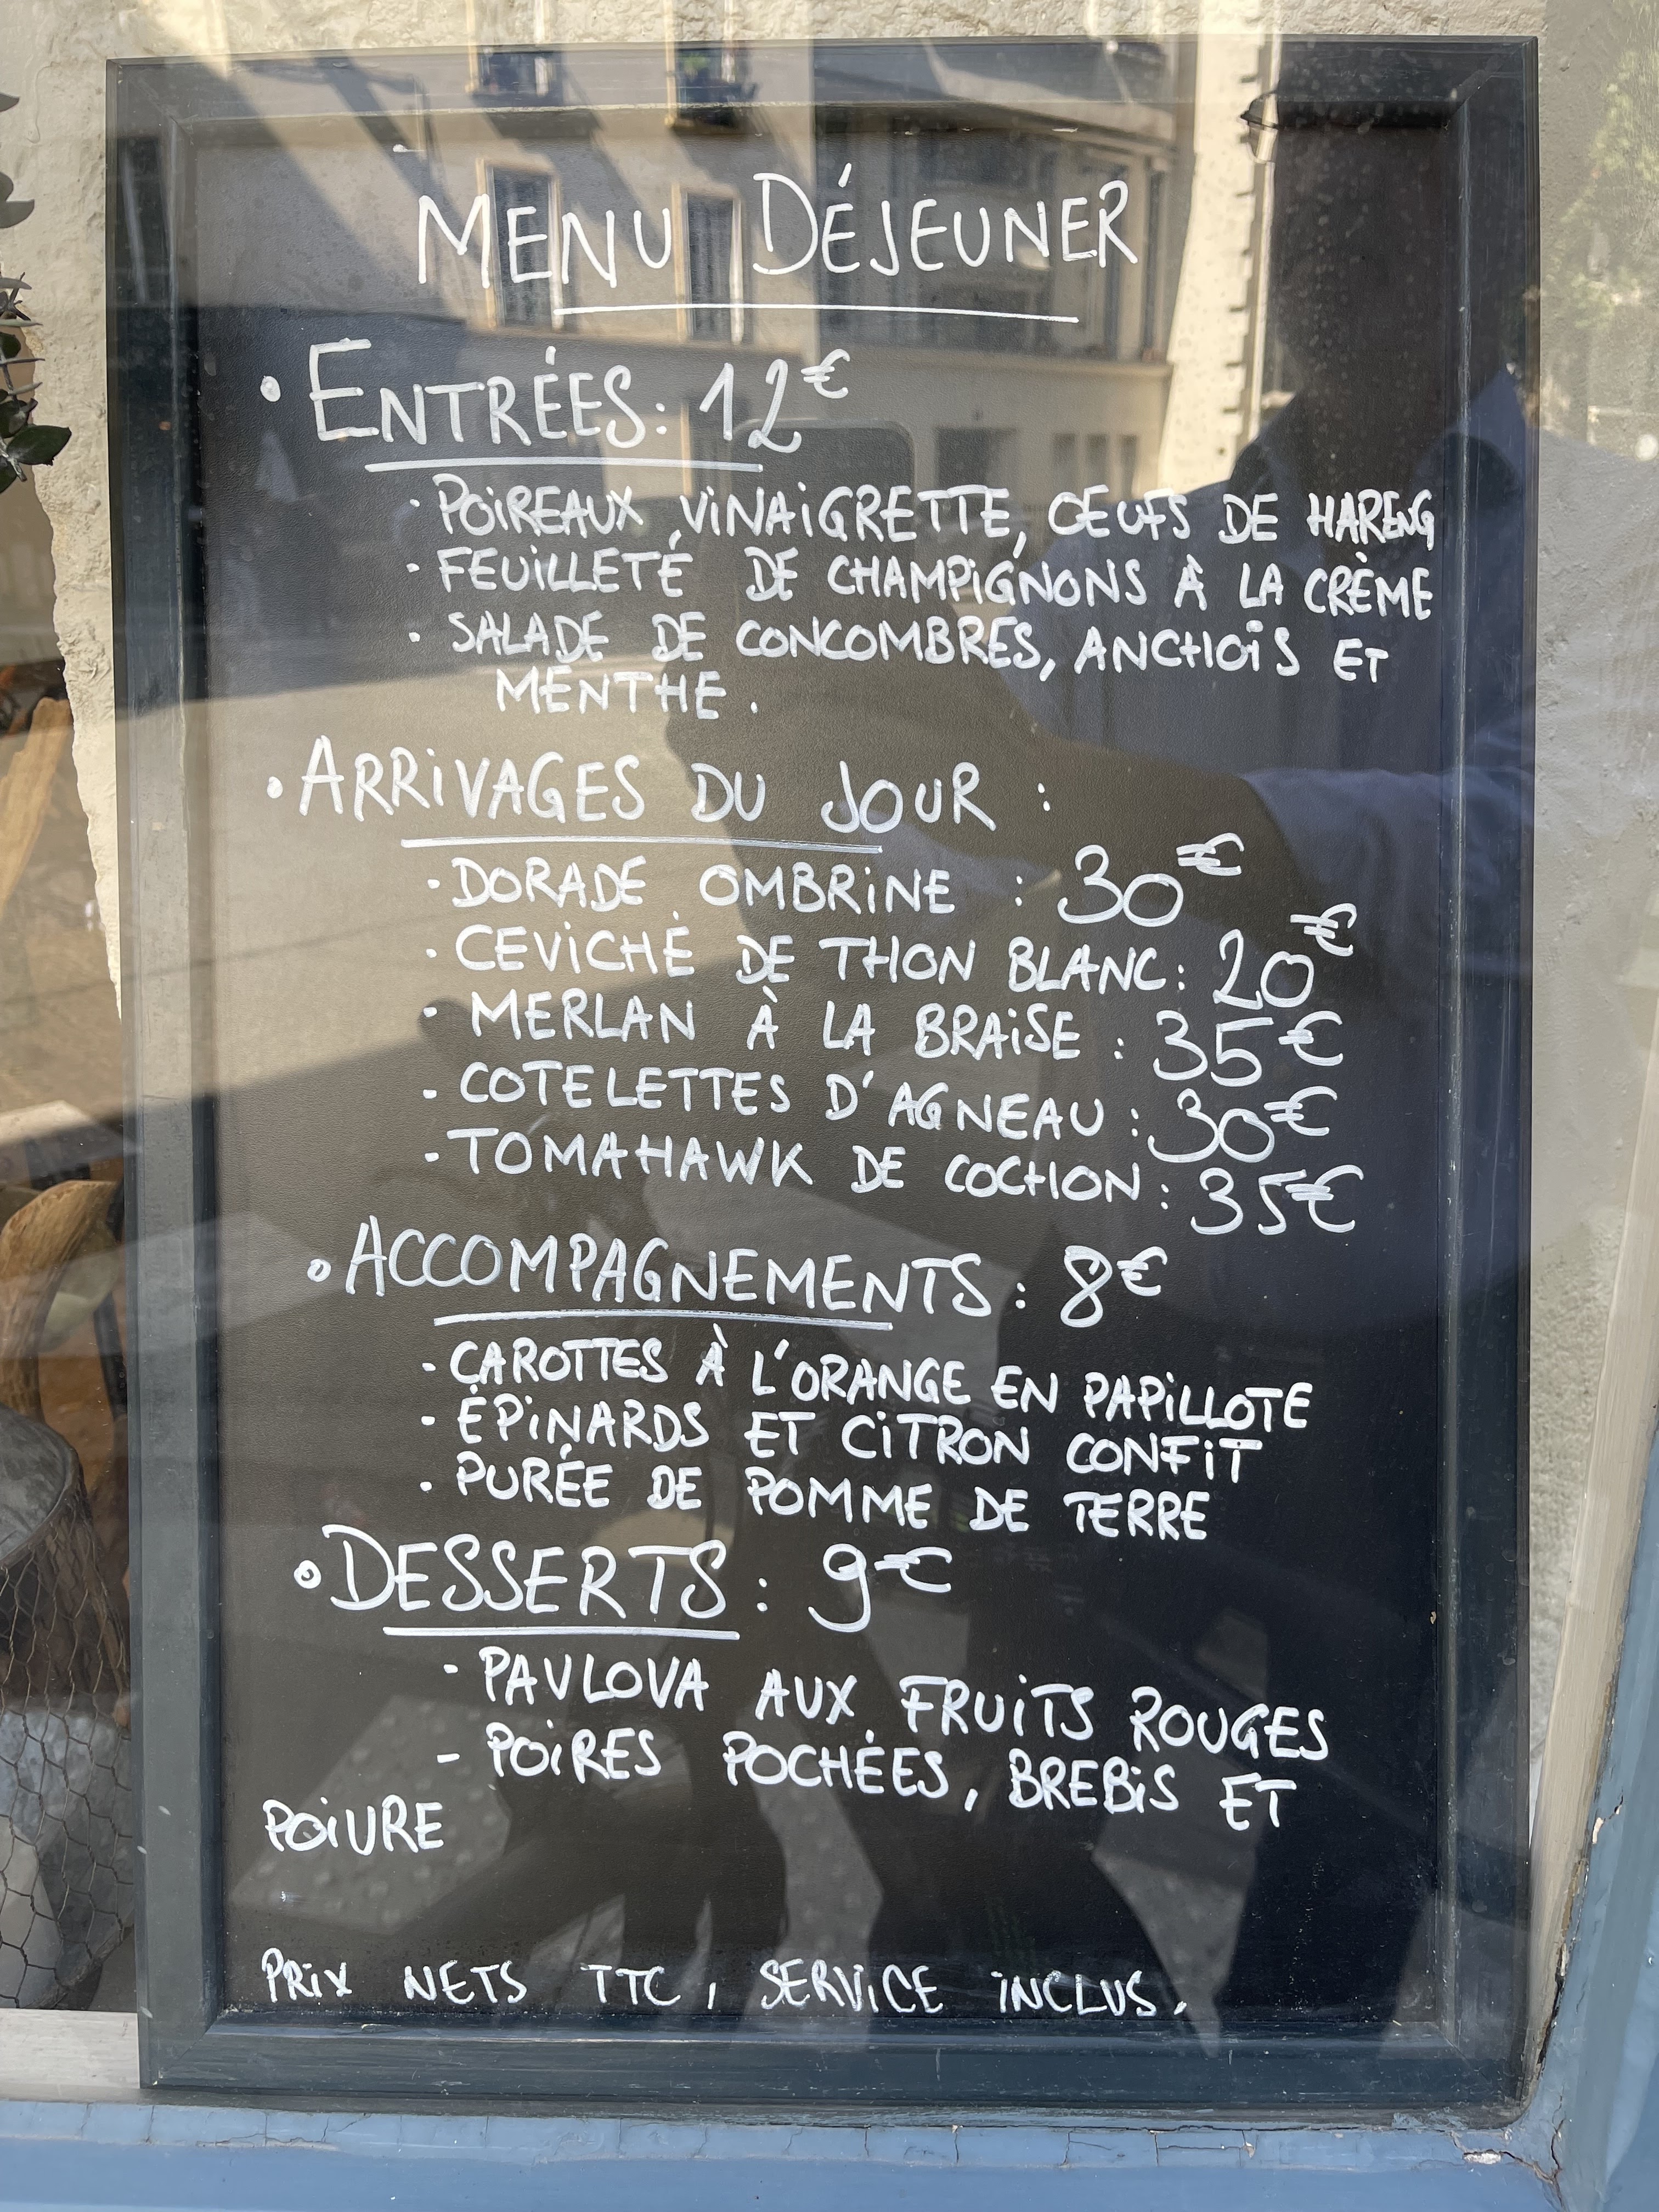 MENU DÉJEUNER
• ENTRÉES: 12€
· POIREAUX VINAIGRETTE, OEUFS DE HARENG
· FEUILLETÉ DE CHAMPIGNONS À LA CRÈME
· SALADE DE CONCOMBRES, ANCHOIS ET
MENTHE.
• ARRIVAGES DU JOUR :
· DORADE OMBRINE : 30€
· CEVICHE DE THON BLANC: 20€
· MERLAN À LA BRAISE : 35€
- COTELETTES D'AGNEAU : 30€
- TOMAHAWK DE COCHON : 35€
• ACCOMPAGNEMENTS : 8€
- CAROTTES À L'ORANGE EN PAPILLOTE
- ÉPINARDS ET CITRON CONFIT
· PURÉE DE POMME DE TERRE
• DESSERTS : 9€
- PAVLOVA AUX FRUITS ROUGES
- POIRES POCHÉES, BREBIS ET
POIVRE
PRIX NETS TTC, SERVICE INCLUS.